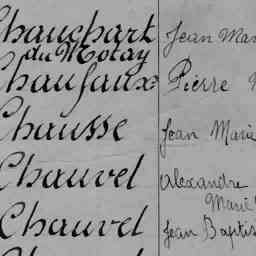 Chauchart Jean Mar
du Motay
Chaufaux Pierre
Chausse Jean Marie
Chauvel Alexandre
Marie
Chauvel Jean Baptis